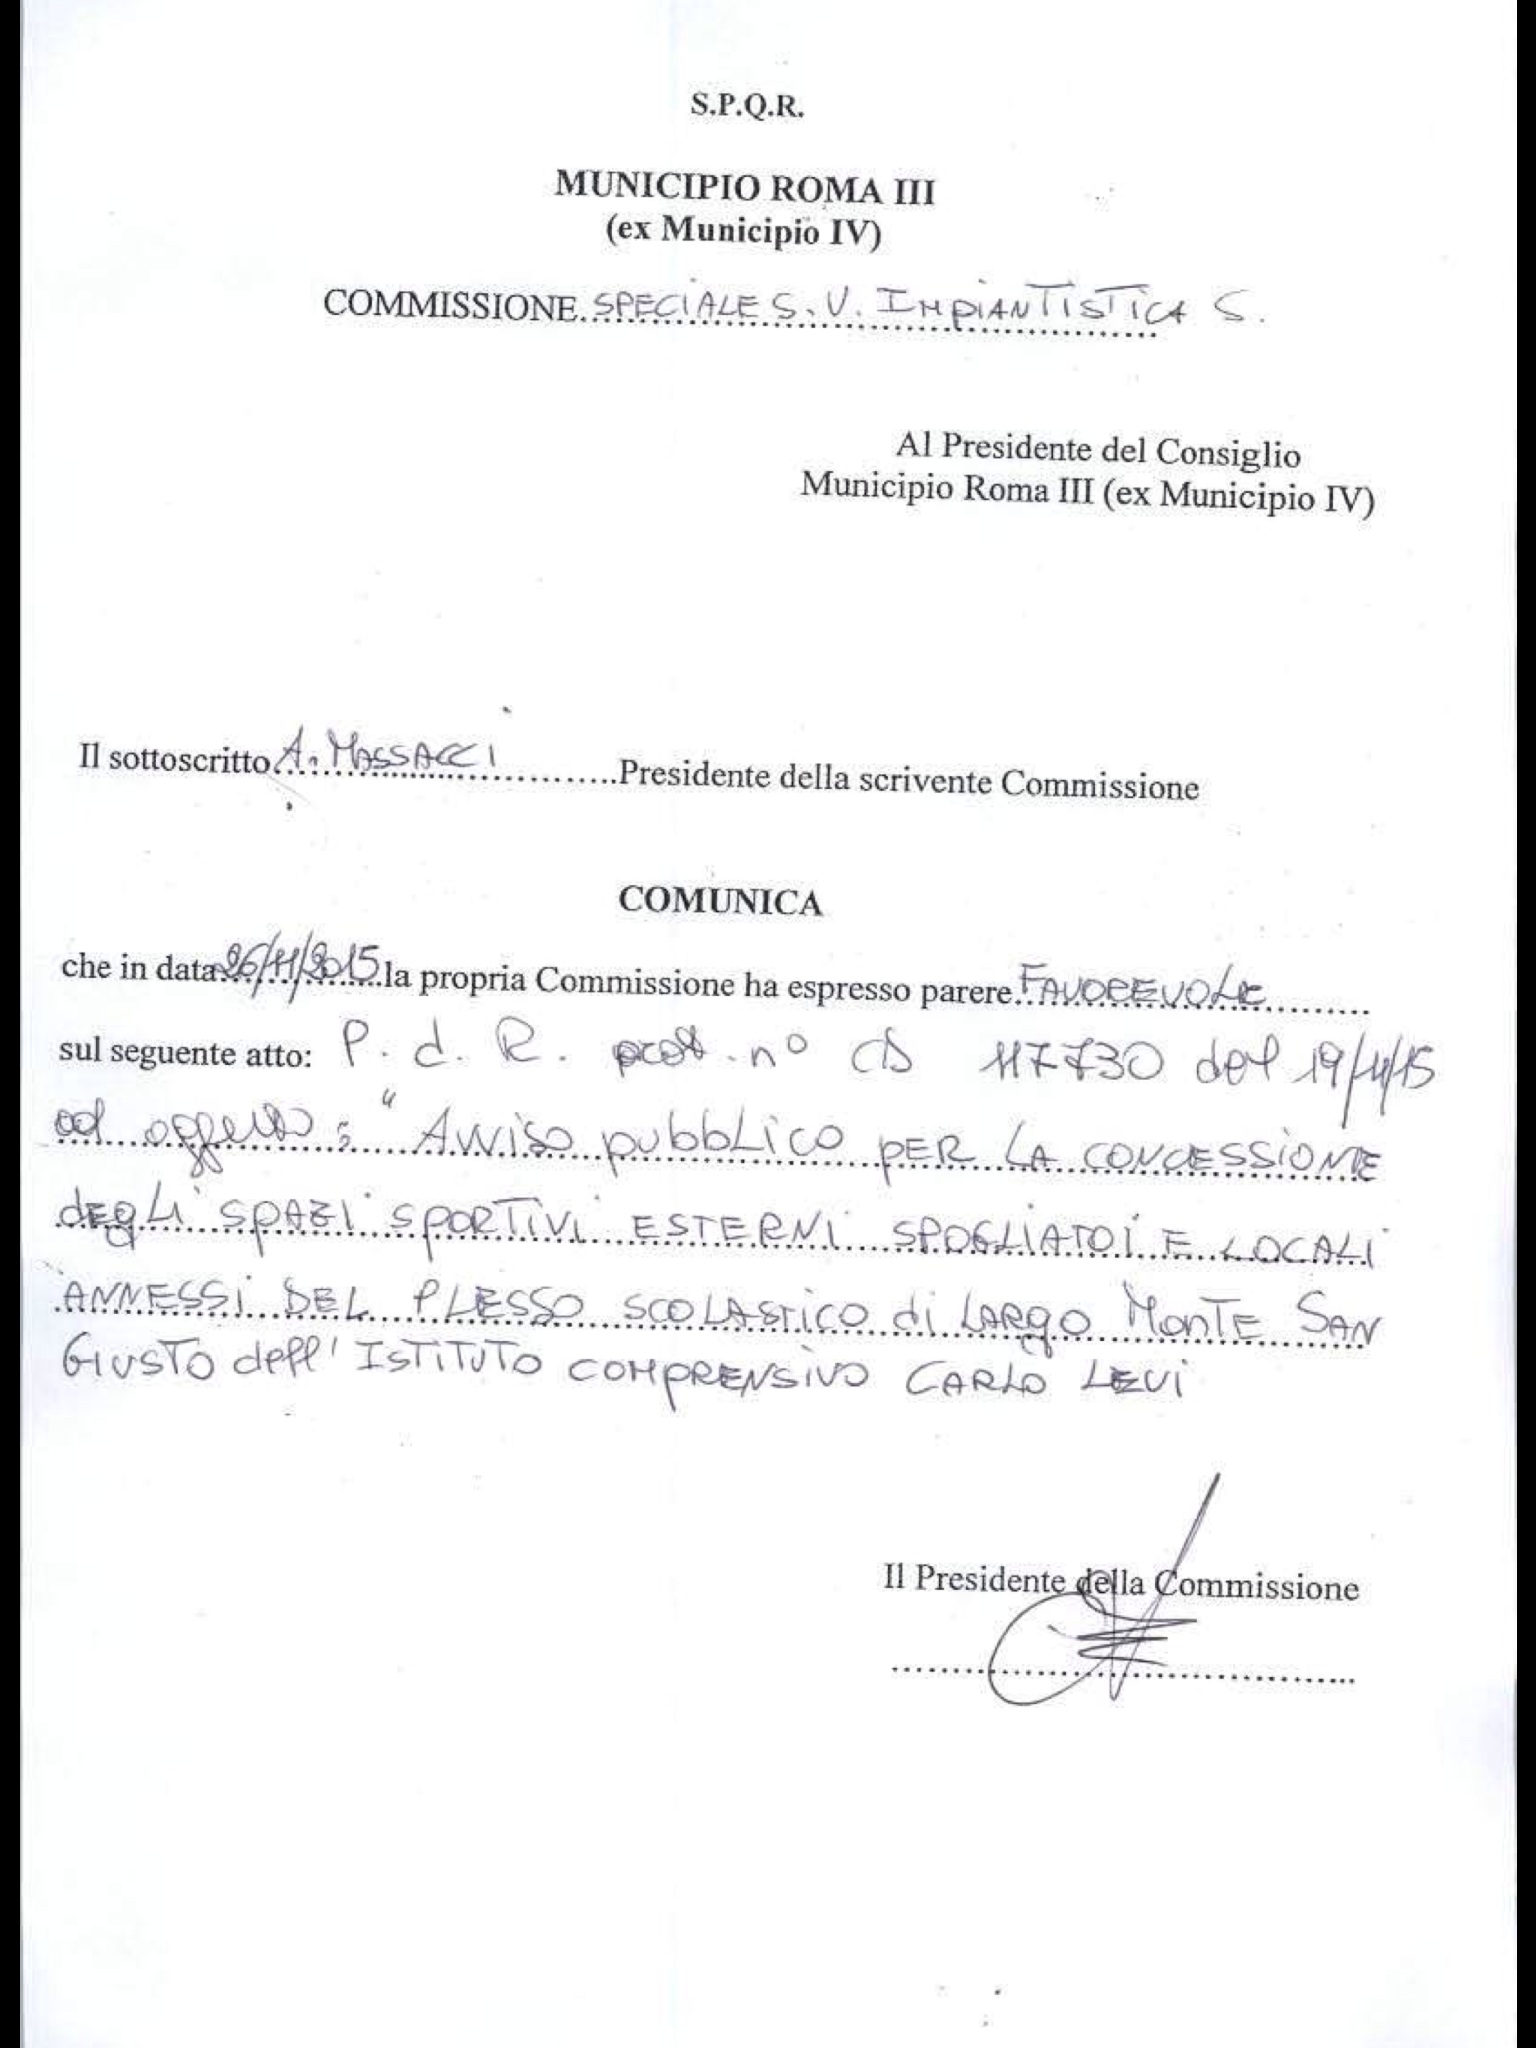 S.P.Q.R.
MUNICIPIO ROMA III
(ex Municipio IV)
COMMISSIONE SPECIALE S. V. IMPIANTISTICA S.
Al Presidente del Consiglio
Municipio Roma III (ex Municipio IV)
Il sottoscritto A. MASSACCI Presidente della scrivente Commissione
COMUNICA
che in data 26/11/2015 la propria Commissione ha espresso parere FAVOREVOLE
sul seguente atto: P. d. R. prot. n° CD 117730 del 19/11/15
ad oggetto: "AVVISO pubbLico PER LA CONCESSIONE
degLi SPAZI SPORTIVI ESTERNI SPOGLIATOI E LOCALI
ANNESSI DEL PLESSO SCOLASTICO di LARgo MONTE SAN
GIUSTO dell' ISTITUTO COMPRENSIVO CARLO LEVI
Il Presidente della Commissione